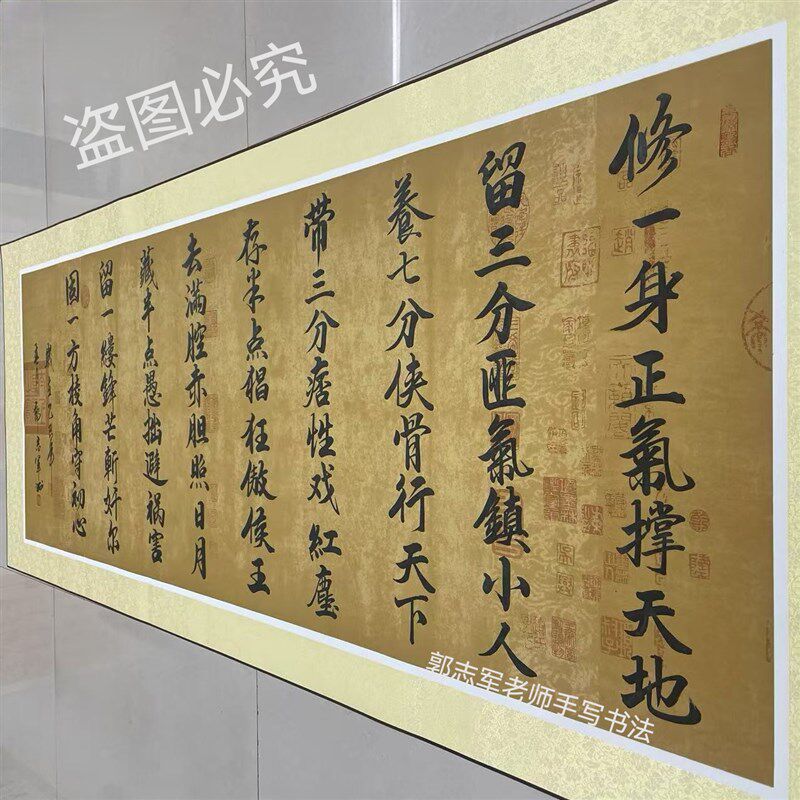 盗图必究
修一身正氣撑天地
留三分匪氣鎮小人
養七分侠骨行天下
带三分痞性戏紅塵
存半点猖狂傲侯王
去满腔赤胆照日月
藏半点愚拙避祸害
留一缕鋒芒斬奸尔
固一方棱角守初心
郭志军老师手写书法